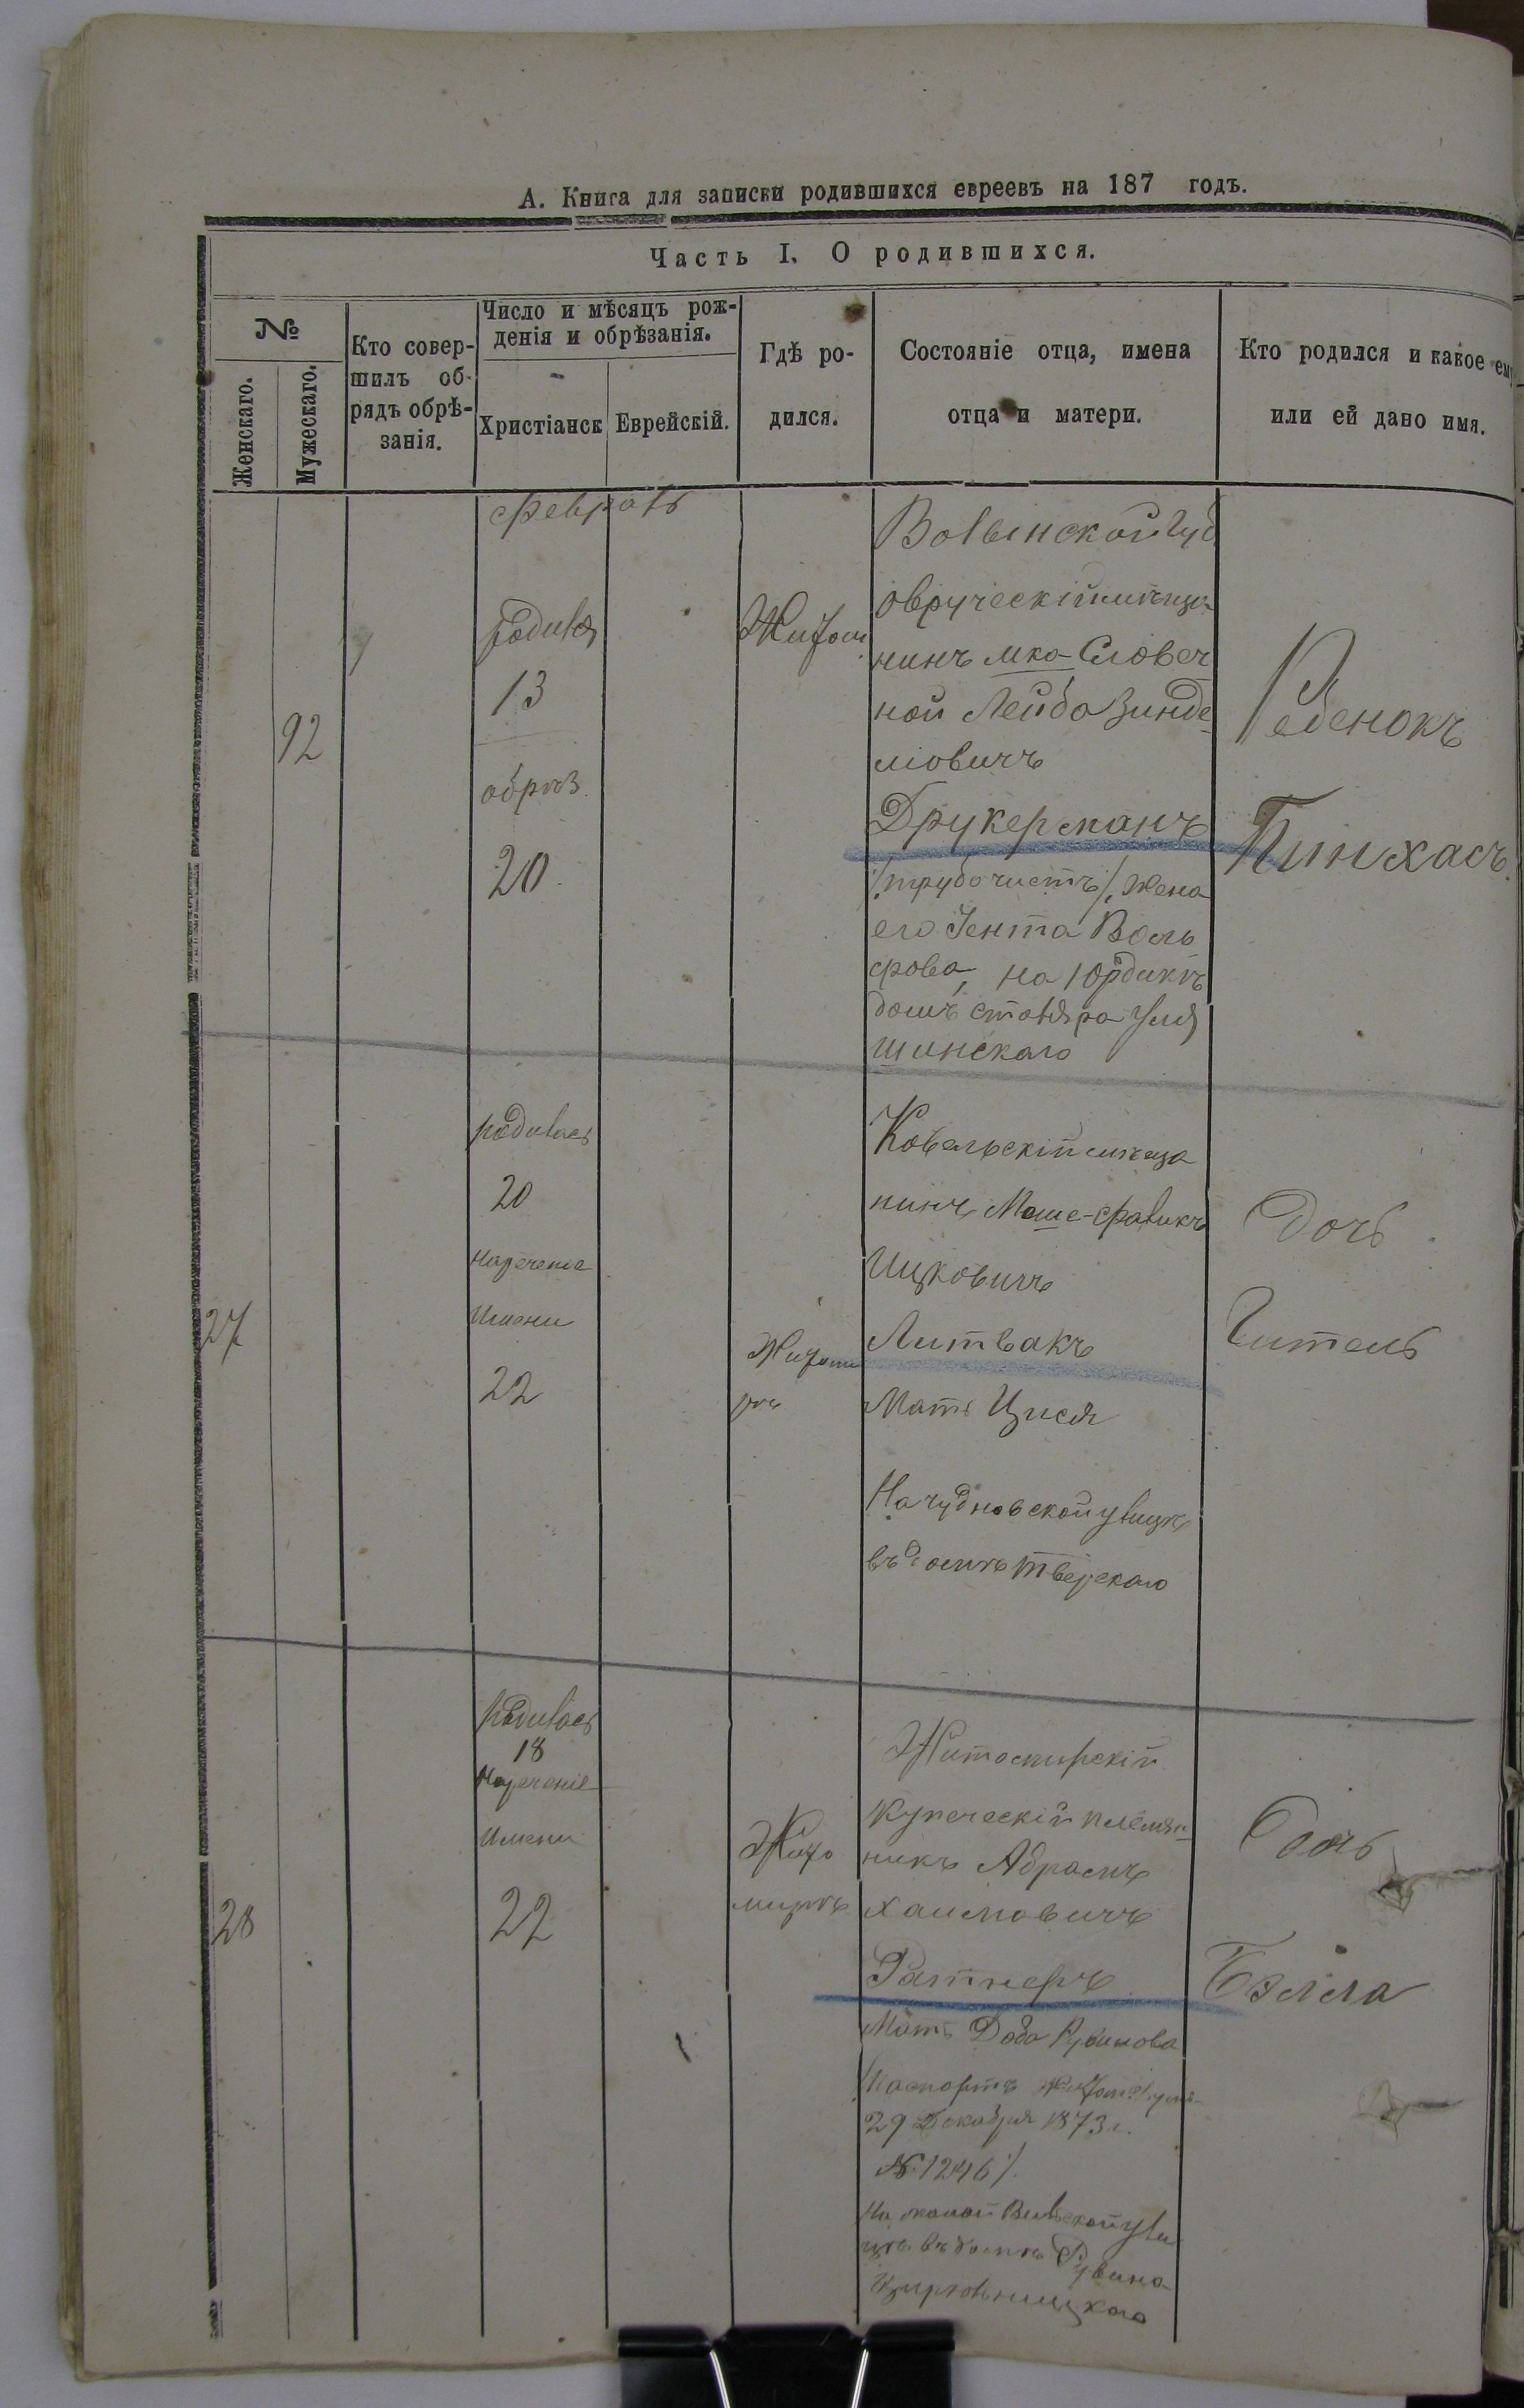 А. Книга для записки родившихся евреевъ на 187 годъ.
Часть I. О родившихся.
№
Женскаго.
Мужескаго.
Кто совер-
шилъ об-
рядъ обрѣ-
занія.
Число и мѣсяцъ рож-
денія и обрѣзанія.
Христіанск
Еврейскій.
Гдѣ ро-
дился.
Состояніе отца, имена
отца и матери.
Кто родился и какое ему
или ей дано имя.
Февраль
92
родился
13
обрѣз
20
Житом
Волынской Губ
овруческій мѣща-
нинъ мка Словеч
ной Лейба Зинде-
ліовичъ
Друкерманъ
/трубочистъ/, жена
его Іента Воль
фова, на Юрдикѣ
домъ столяра
шинскаго
Ребенокъ
Пинхасъ
27
родилась
20
Нареченіе
Имени
22
Житоми
рѣ
Ковельскій мѣща
нинъ Моше-Фавикъ
Ицковичъ
Литвакъ
Мать Цися
На чудновской улицѣ
въ домѣ Тверскаго
Дочь
Гитель
28
родилась
18
Нареченіе
Имени
22
Жито
мирѣ
Житомирскій
Купеческій племян-
никъ Абрамъ
Хаимовичъ
Ратнеръ
Мать Доба Рувинова
/паспортъ
29 Декабря 1873 г.
№ 1246/.
На малой Вильской ули
цѣ въ домѣ Рувина
Дочь
Бэлла